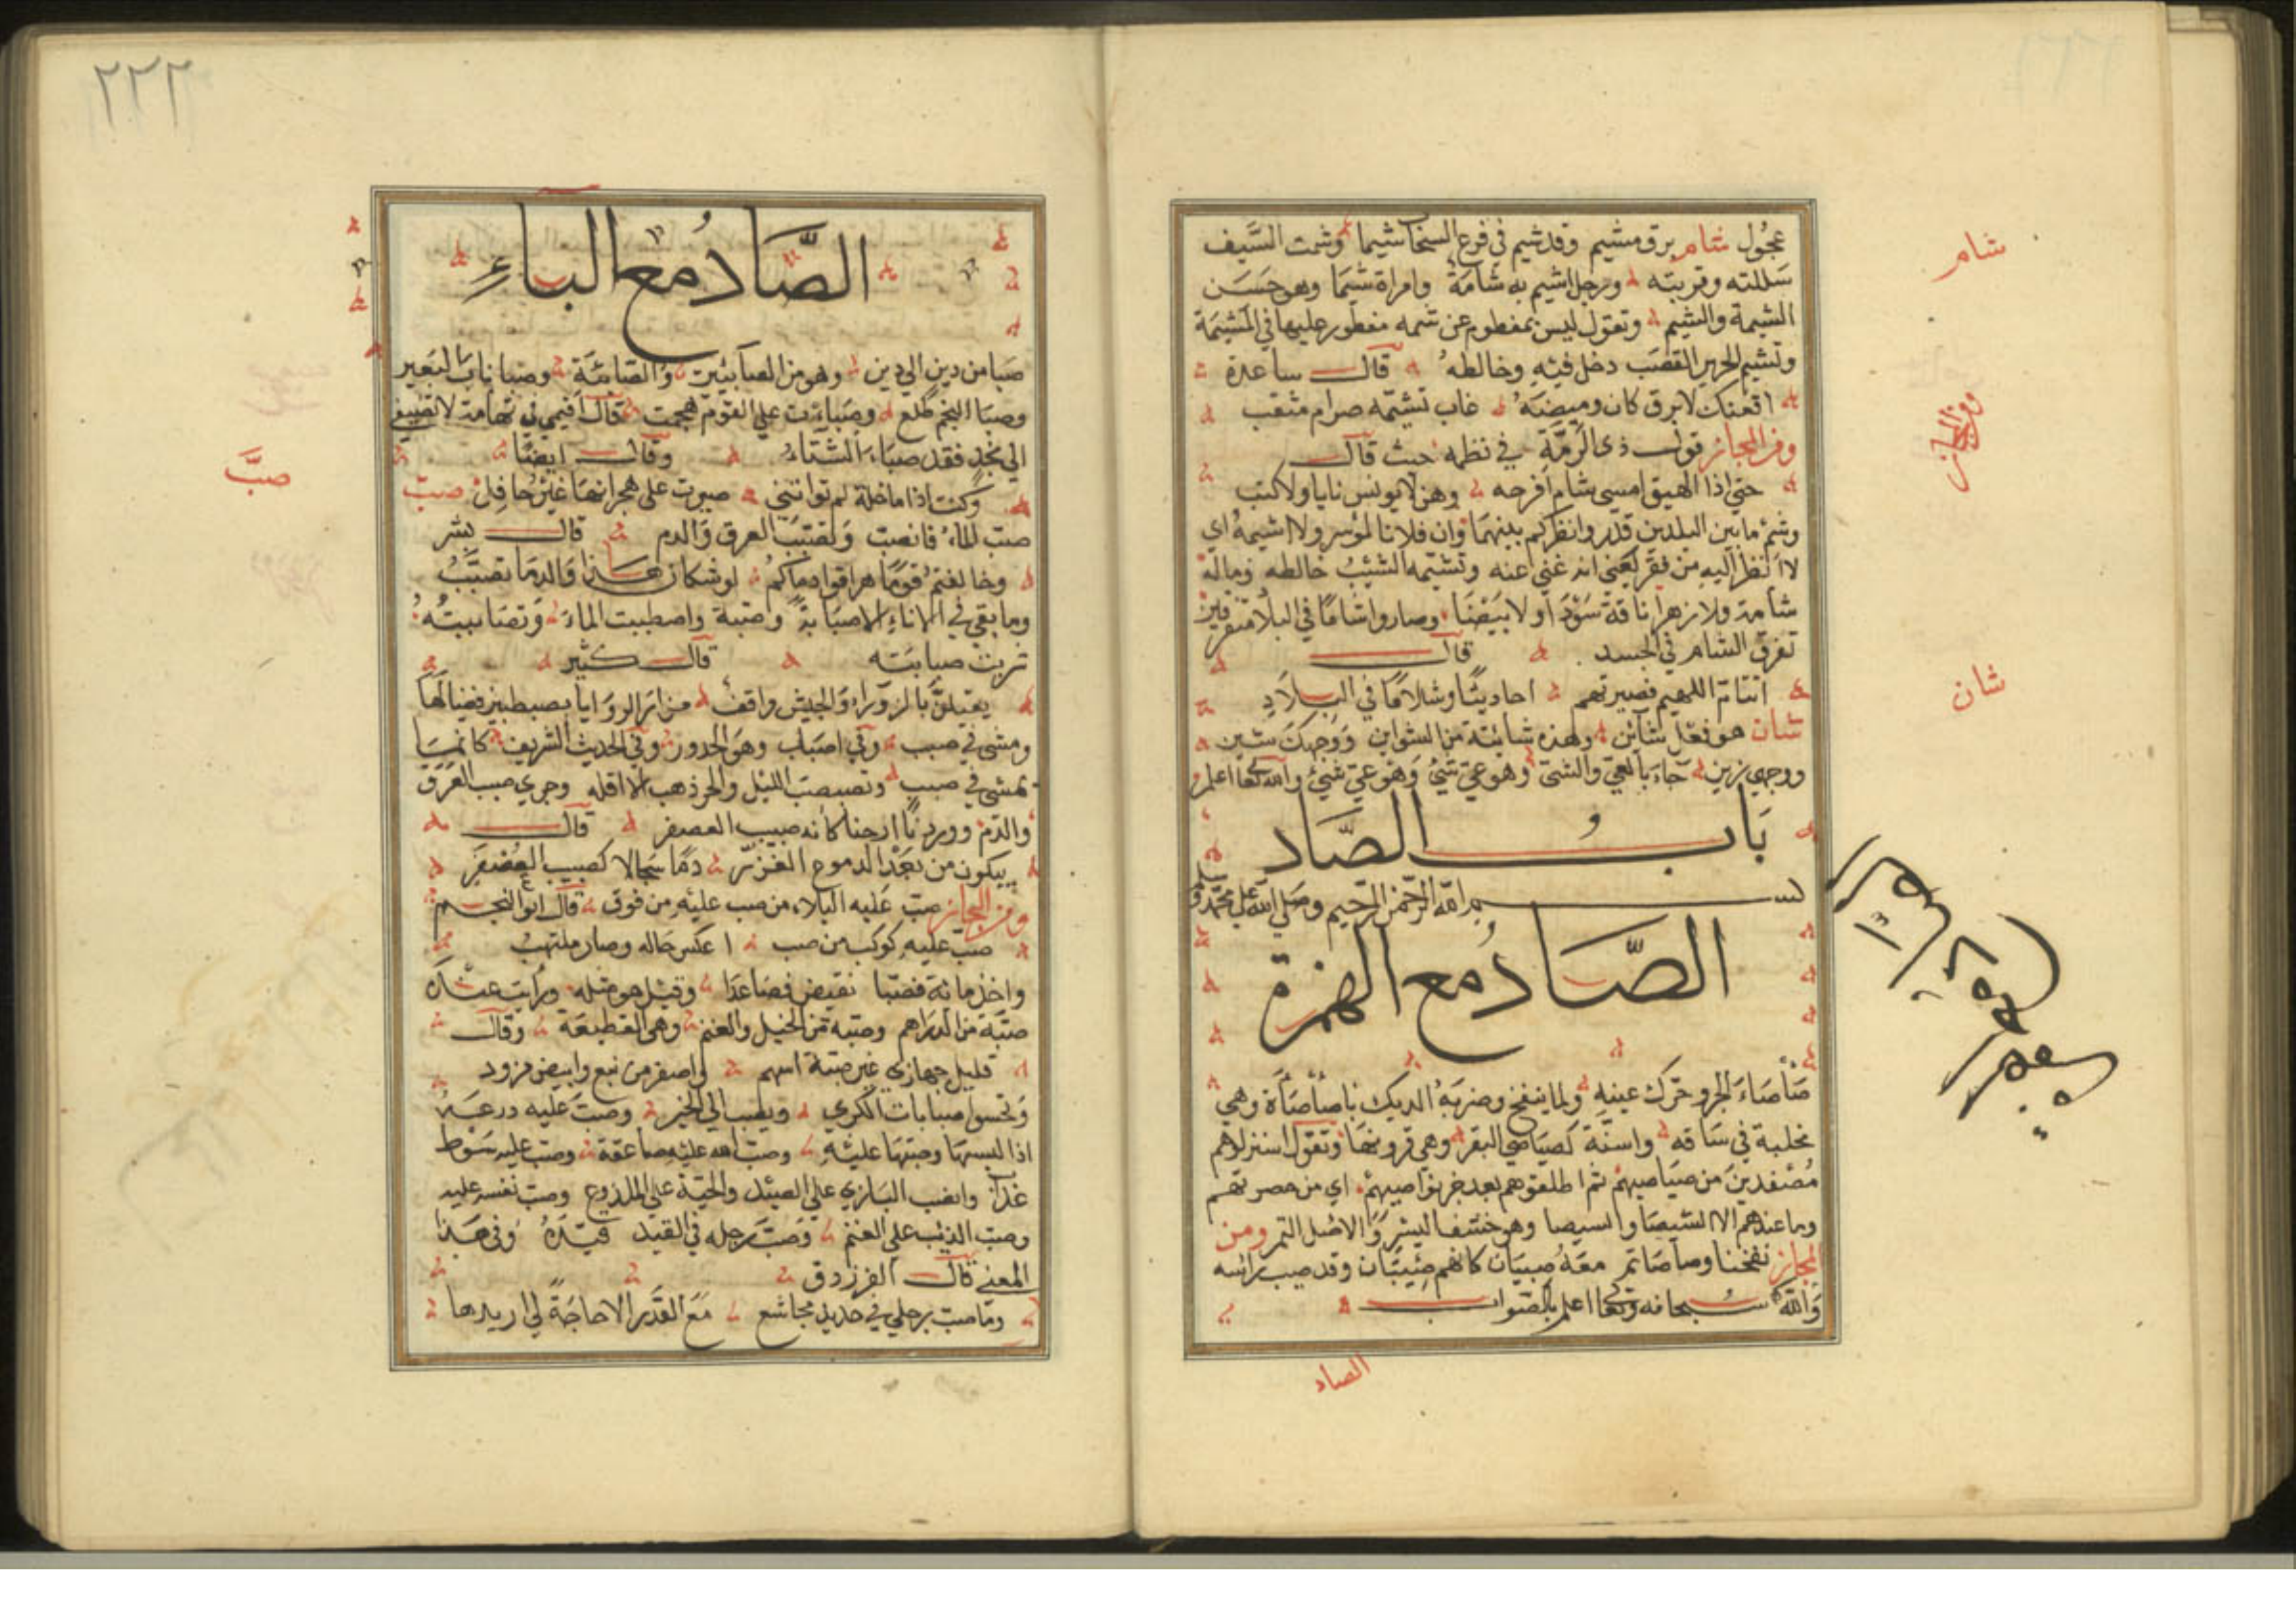 عجُول شام برق مشيم وقد شيم في فرع السخا شيما وشمت السَّيف
سَللته وقربته ورجل اشيم به شامَةٌ وامراة شيمَا وهو حَسَن
الشيمة والشيم وتقول ليس بمفطوم عن شمه مفطور عليها في المَشيَمَة
وتشيم الحرير القصَب دخل فيْهِ وخالطهُ قالــ ساعدة
افعنك لا برق كان وميضَهُ غاب تشيّمه ضرام مثقب
ومن المجاز قولــ ذى الرمّة في نظمه حيث قالــ
حتي اذا الهيق امسي شام افرخه وهن لا يونس نايا ولا كتب
وشم ما بين البلدين قدر وانظر كم بينهمَا وان فلانا لمؤسر ولا اشيمهُ اي
لا انظر اليهِ من فقر يَعْني انه غني عنه وتشيّمه الشيْبُ خالطه وماله
شامة ولا زهرا ناقة سَوْدَا ولا بَيْضَا وصاروا شامًا في البلاد متفرقين
تفرق الشام في الجسد قالــ
انتاتم اللهيم فصيرتهم احاديثًا وشلامًا في البلَادِ
شان هو فعل شائن وهذه شائنة من الشواين وَوجهك شين
ووجهي زين جاءَ بالعيّ والشيّ وهو عيّ شيّ وهو عييّ شييّ والله تعا اعلم
بَابُ الصَّاد
بسم الله الرّحمن الرّحيم وصَلي الله علي محمّد وسلم
الصَّادُ مع الهمزة
صَأصَاءَ الجرو حرّك عينيهِ ولما ينفخ وضربَهُ الديك باصأصأة وهي
مخلبة في سَاقه واسنّة كصيَاصي البقر وهي قرونهَا وتقول استنزلوهم
مُصَفدينَ من صيَاصيهمْ ثم اطلقوهم بعد جز نواصيهمْ اي من حصونهم
وما عندهم الا الشيصَا والسيصا وهو خشف البسْر وَالاصل التمر ومن
المجاز نفخنا وصاصَاتم معَهُ صِبيَان كانهم صِئبَان وقد صيب راسه
وَاللهُ سُبحانه وتعا اعلم بالصّوابــ
شام
ومن المجاز
شان
الصاد
٢٢٢
الصَّادُ مع الباءِ
صَبا من دين الي دين وهو من الصَابئين وَالصَّابئَة وصبا نابُ البَعير
وصبَا النجم طلع وصَبات علي القوم هجمت قال اقيمي في تهامة لا تصيفي
الي نجدٍ فقد صبَاءَ الشّتَاءُ وقالــ ايضًا
وكنت اذا ما خلة لم تواتني صبرت على هجرانهَا غيْرُ حَافِل صبّ
صبّ الماءُ فانصبّ وَتصَبّبَ العرق وَالدم قالــ بشر
وخالفتمْ قومًا هراقوا دماكمُ لوشكان هــذا وَالدمَا تصَبَّبُ
وما بقي في الاناءِ الا صبَابةٌ وصبّة واصطببت الماءَ وَتصَاببتُهُ
شربت صبابَته قالــ كثير
يقيلنَّ بالزوراء وَالجيش واقف من ابر الروَايا يصطبين فضالَهَا
ومشى في صبب وفي اصباب وهوَ الحدور وفي الحديث الشريف كانمَا
يمشي في صببٍ وتصبصبَ الليْل والحر ذهب الا اقله وجري صبب العَرَق
والدّم ووردنا ارجنا كانه صبيب العصفر قالــ
يبكون من بَعْد الدموع الغزّر دمًا سجالا كصبيب العُصْفَر
ومن المجاز صبّ عَليه البلاءِ من صب عليْهِ من فوق قال ابو النجــم
صبّ عليهِ كوكب من صب ا عكس حَاله وصار ملتهبْ
واخذ مائة فصبّا نقيض فصَاعدًا وقيْل هو مثله ورايت عنْدَهُ
صبّة من الدرَاهم وصبّة من الخيل والغنم وهي القطيعَة وَقالــ
قليل جهازي غير صبّة اسهم واصفر من نبع وابيض مزود
وَتحسوا صبابات الكري ويصَب الي الخير وصبّ عليه درعــهُ
اذا البسهَا وصَبّهَا عليْهِ وصبّ الله عليْهِ صَاعقة وصبّ عليهِ سَوط
عَذابْ وانصب البَازي علي الصيْد والحيّة علي الملدوغ وصبّ نفسه عليه
وصبّ الذئب علي الغنم وَصَبّ رجله في القيد قيّدَهُ وفي هَــذا
المعني قالــ الفرزدق
وَمَا صبّ رجلي في حديد مجاشع مَعَ القَدر الا حَاجَةً لي اريدها
صبَّ